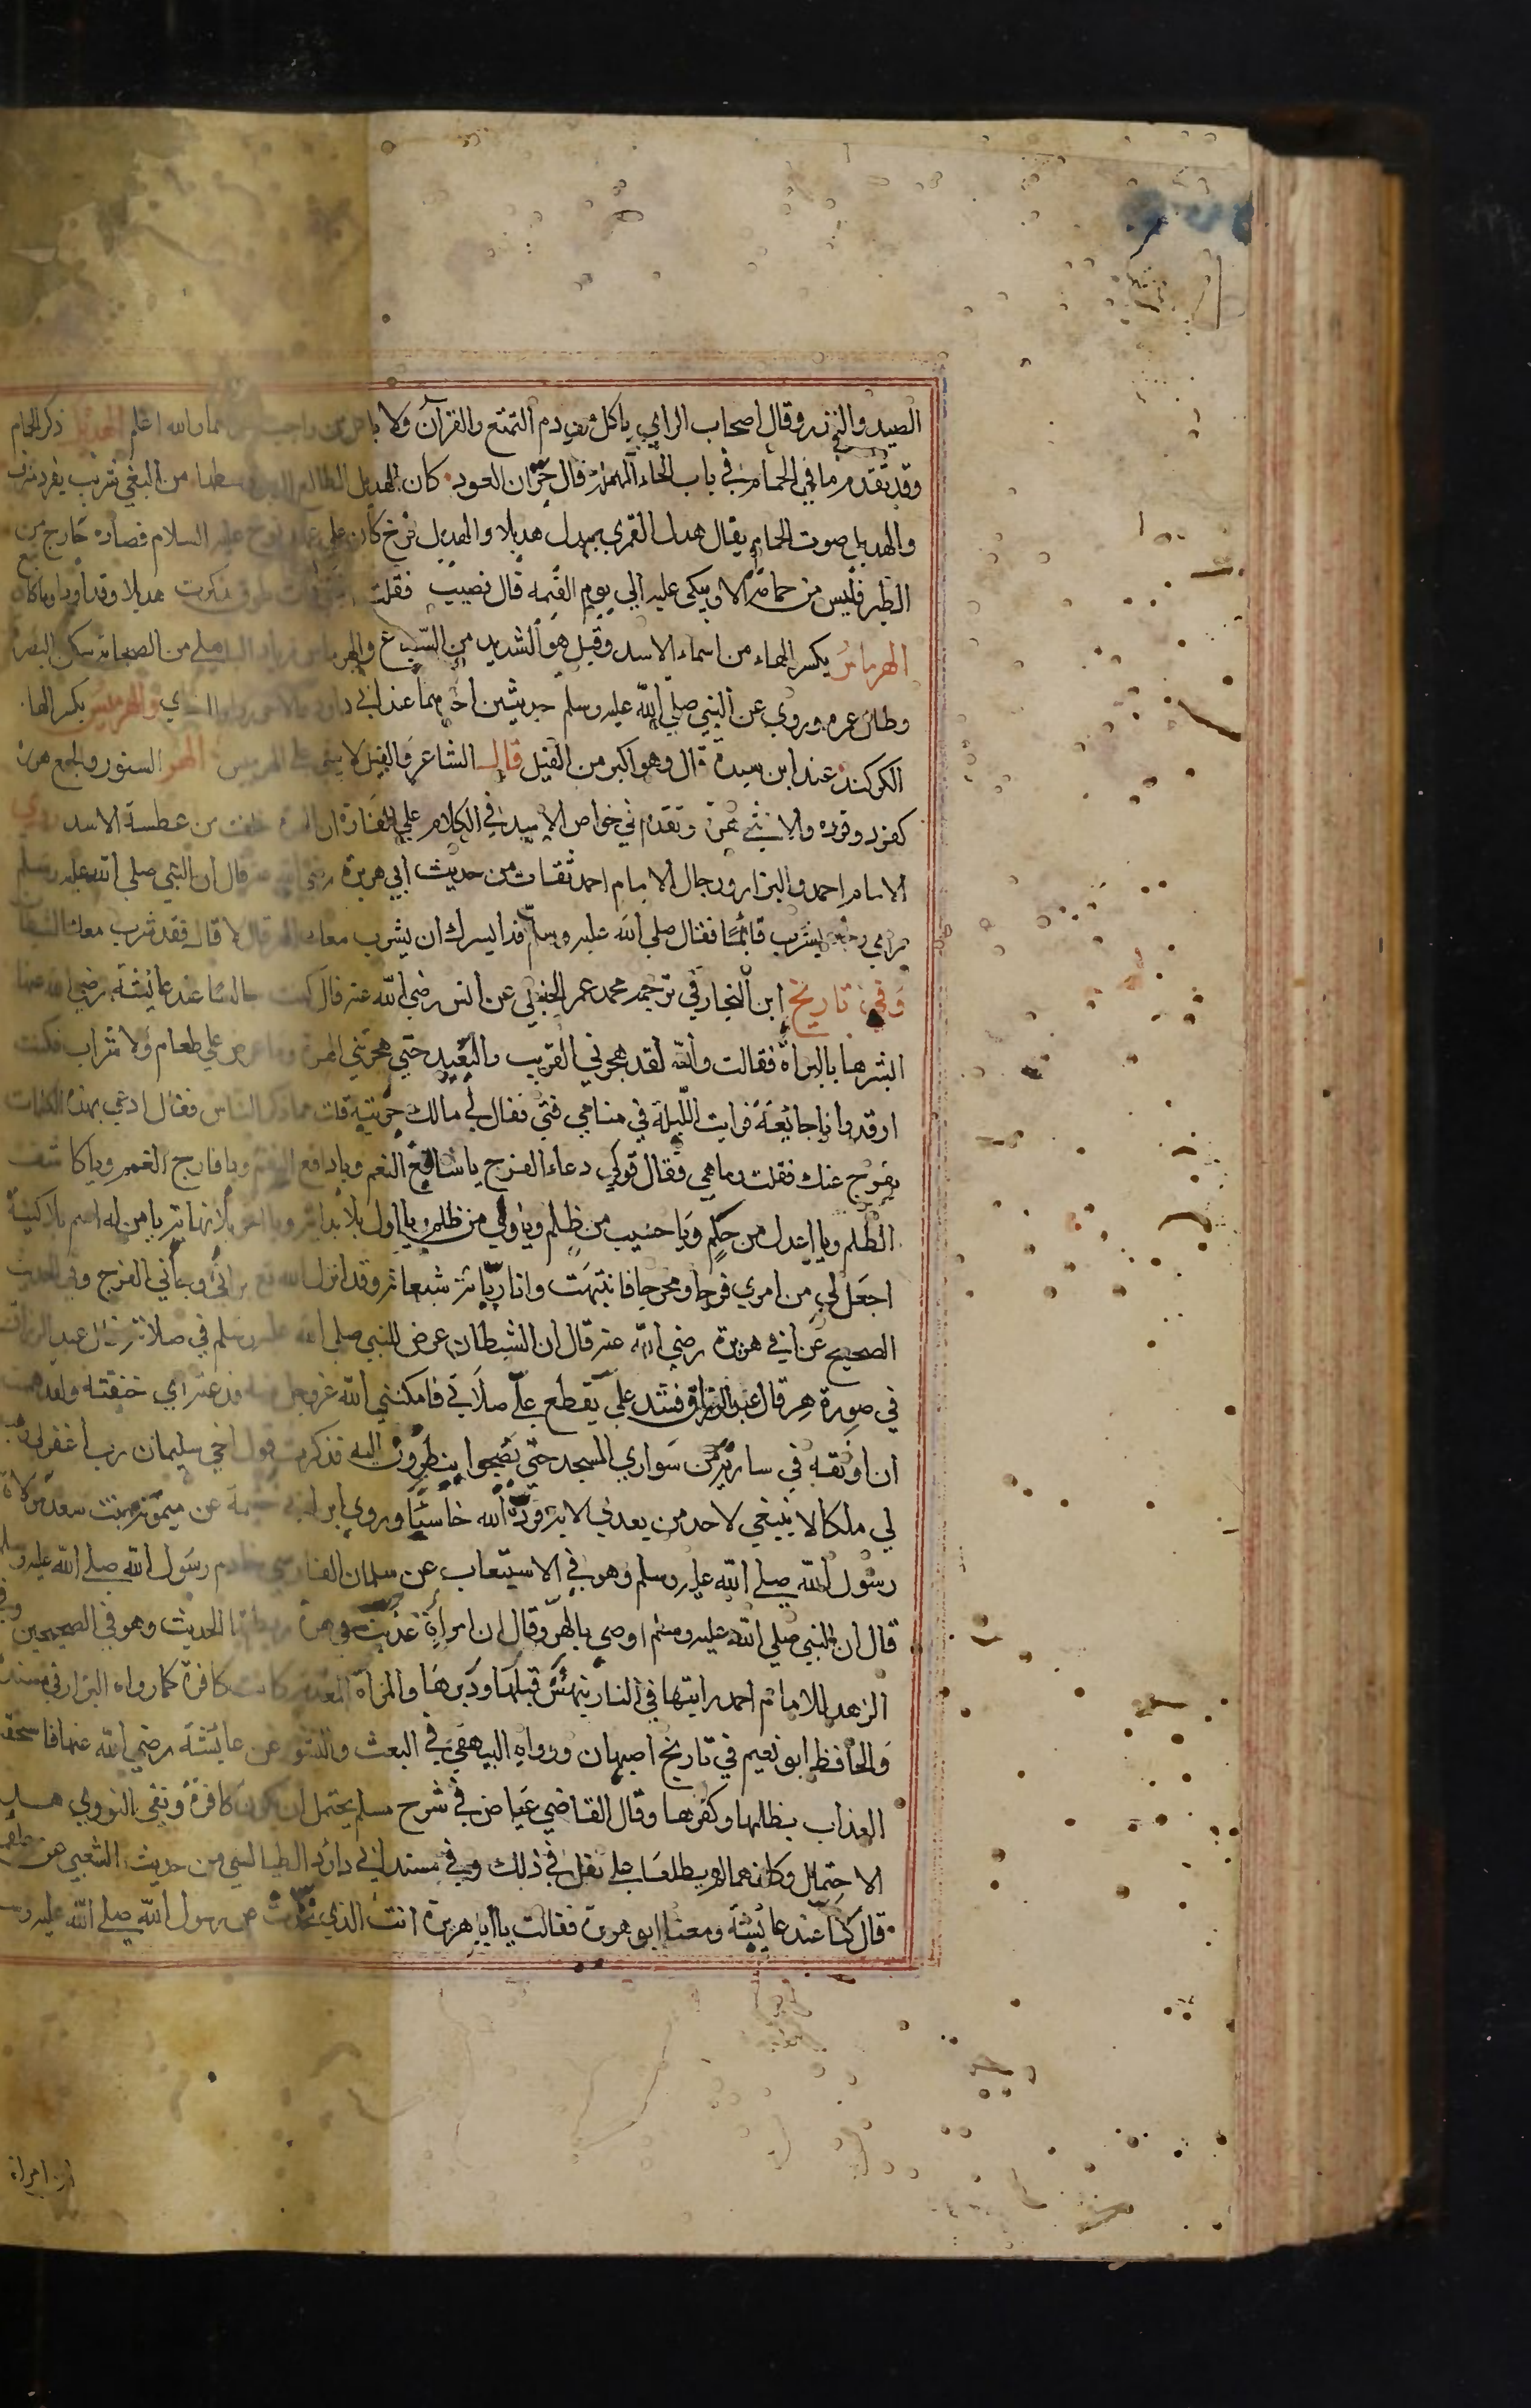 الصيد والنذر وقال اصحاب الراي ياكل من دم التمتع والقرآن ولا ياكل من واجب والله اعلم الهديل ذكر الحمام
وقد تقدم ما في الحمام في باب الحاء المهملة قال جران العود كان الهديل الظالع من البغي
والهديل صوت الحمام يقال هدل القمري يهدل هديلا والهديل فرخ كان علي نوح عليه السلام فصاده جارح من
الطير فليس من حمامة الا ويبكي عليه الي يوم القيمة قال نصيب فقلت ذكرت هديلا وقد اودا وما كان تبع
الهرماس بكسر الهاء من اسماء الاسد وقيل هو الشديد من السباع والهرماس زياد الباهلي من الصحابة سكن البصرة
وطال عمره وروي عن النبي صلي الله عليه وسلم حديثين احدهما عند ابي داود والهرميس بكسر الها
الكركند عند ابن سيدة قال وهو اكبر من الفيل قال الشاعر والفيل لا يبقي علي الهرميس الهر السنور والجمع هررة
كقرد وقردة والانثي هرة وتقدم في خواص الاسد في الكلام علي الفارة ان خلقت من عطسة الاسد روي
الامام احمد والبزار ورجال الامام احمد ثقات من حديث ابي هريرة رضي الله عنه قال ان النبي صلي الله عليه وسلم
راي رجلا يشرب قائما فقال صلي الله عليه وسلم ايسرك ان يشرب معك الهر قال لا قال فقد شرب معك الشيطان
وفي تاريخ ابن النجار في ترجمة محمد عمر الحنبلي عن انس رضي الله عنه قال كنت جالسا عند عائشة رضي الله عنها
ابشرها بالبراة فقالت والله لقد هجرني القريب والبعيد حتي هجرتني الهرة وما عرض علي طعام ولا شراب فكنت
ارقد وانا جائعة فرايت الليلة في منامي فتي فقال لي مالك حزينة قلت مما ذكر الناس فقال ادعي بهذه الكلمات
يفرج عنك فقلت وما هي فقال قولي دعاء الفرج يا سابغ النعم ويا دافع النقم ويا فارج الغمم ويا كاشف
الظلم ويا اعدل من حكم ويا حسيب من ظلم ويا ولي من ظلم ويا اول بلا بداية ويا اخر بلا نهاية يا من له اسم بلا كنية
اجعل لي من امري فرجا ومخرجا فانتبهت وانا ريانة شبعانة وقد انزل الله تع براتي وجاني الفرج وفي الحديث
الصحيح عن ابي هريرة رضي الله عنه قال ان الشيطان عرض للنبي صلي الله عليه وسلم في صلاته قال عبد الرزاق
في صورة هر قال عبد الرزاق فشد علي يقطع علي صلاتي فامكنني الله عز وجل منه فذعته اي خنقته ولقد هممت
ان اوثقه في سارية من سواري المسجد حتي تصبحوا ينظرون اليه فذكرت قول اخي سليمان رب اغفر لي وهب
لي ملكا لا ينبغي لاحد من بعدي فرده الله خاسئا وروي ابن ابي خيثمة عن ميمونة بنت سعد مولاة
رسول الله صلي الله عليه وسلم وهو في الاستيعاب عن سلمان الفارسي خادم رسول الله صلي الله عليه وسلم
قال ان النبي صلي الله عليه وسلم اوصي بالهر وقال ان امراة عذبت في هرة ربطتها الحديث وهو في الصحيحين وفي
الزهد للامام احمد رايتها في النار ينهش قبلها ودبرها والمراة المعذبة كانت كافرة كما رواه البزار في مسنده
والحافظ ابو نعيم في تاريخ اصبهان ورواه البيهقي في البعث والنشور عن عائشة رضي الله عنها فاستحقت
العذاب بظلمها وكفرها وقال القاضي عياض في شرح مسلم يحتمل ان يكون كافرة ونفي النووي هذا
الاحتمال وكانهما لم يطلعا علي نقل في ذلك وفي مسند ابي داود الطيالسي من حديث الشعبي عن علقمة
قال كنا عند عائشة ومعنا ابو هريرة فقالت يا ابا هريرة انت الذي تحدث عن رسول الله صلي الله عليه وسلم
ان امراة